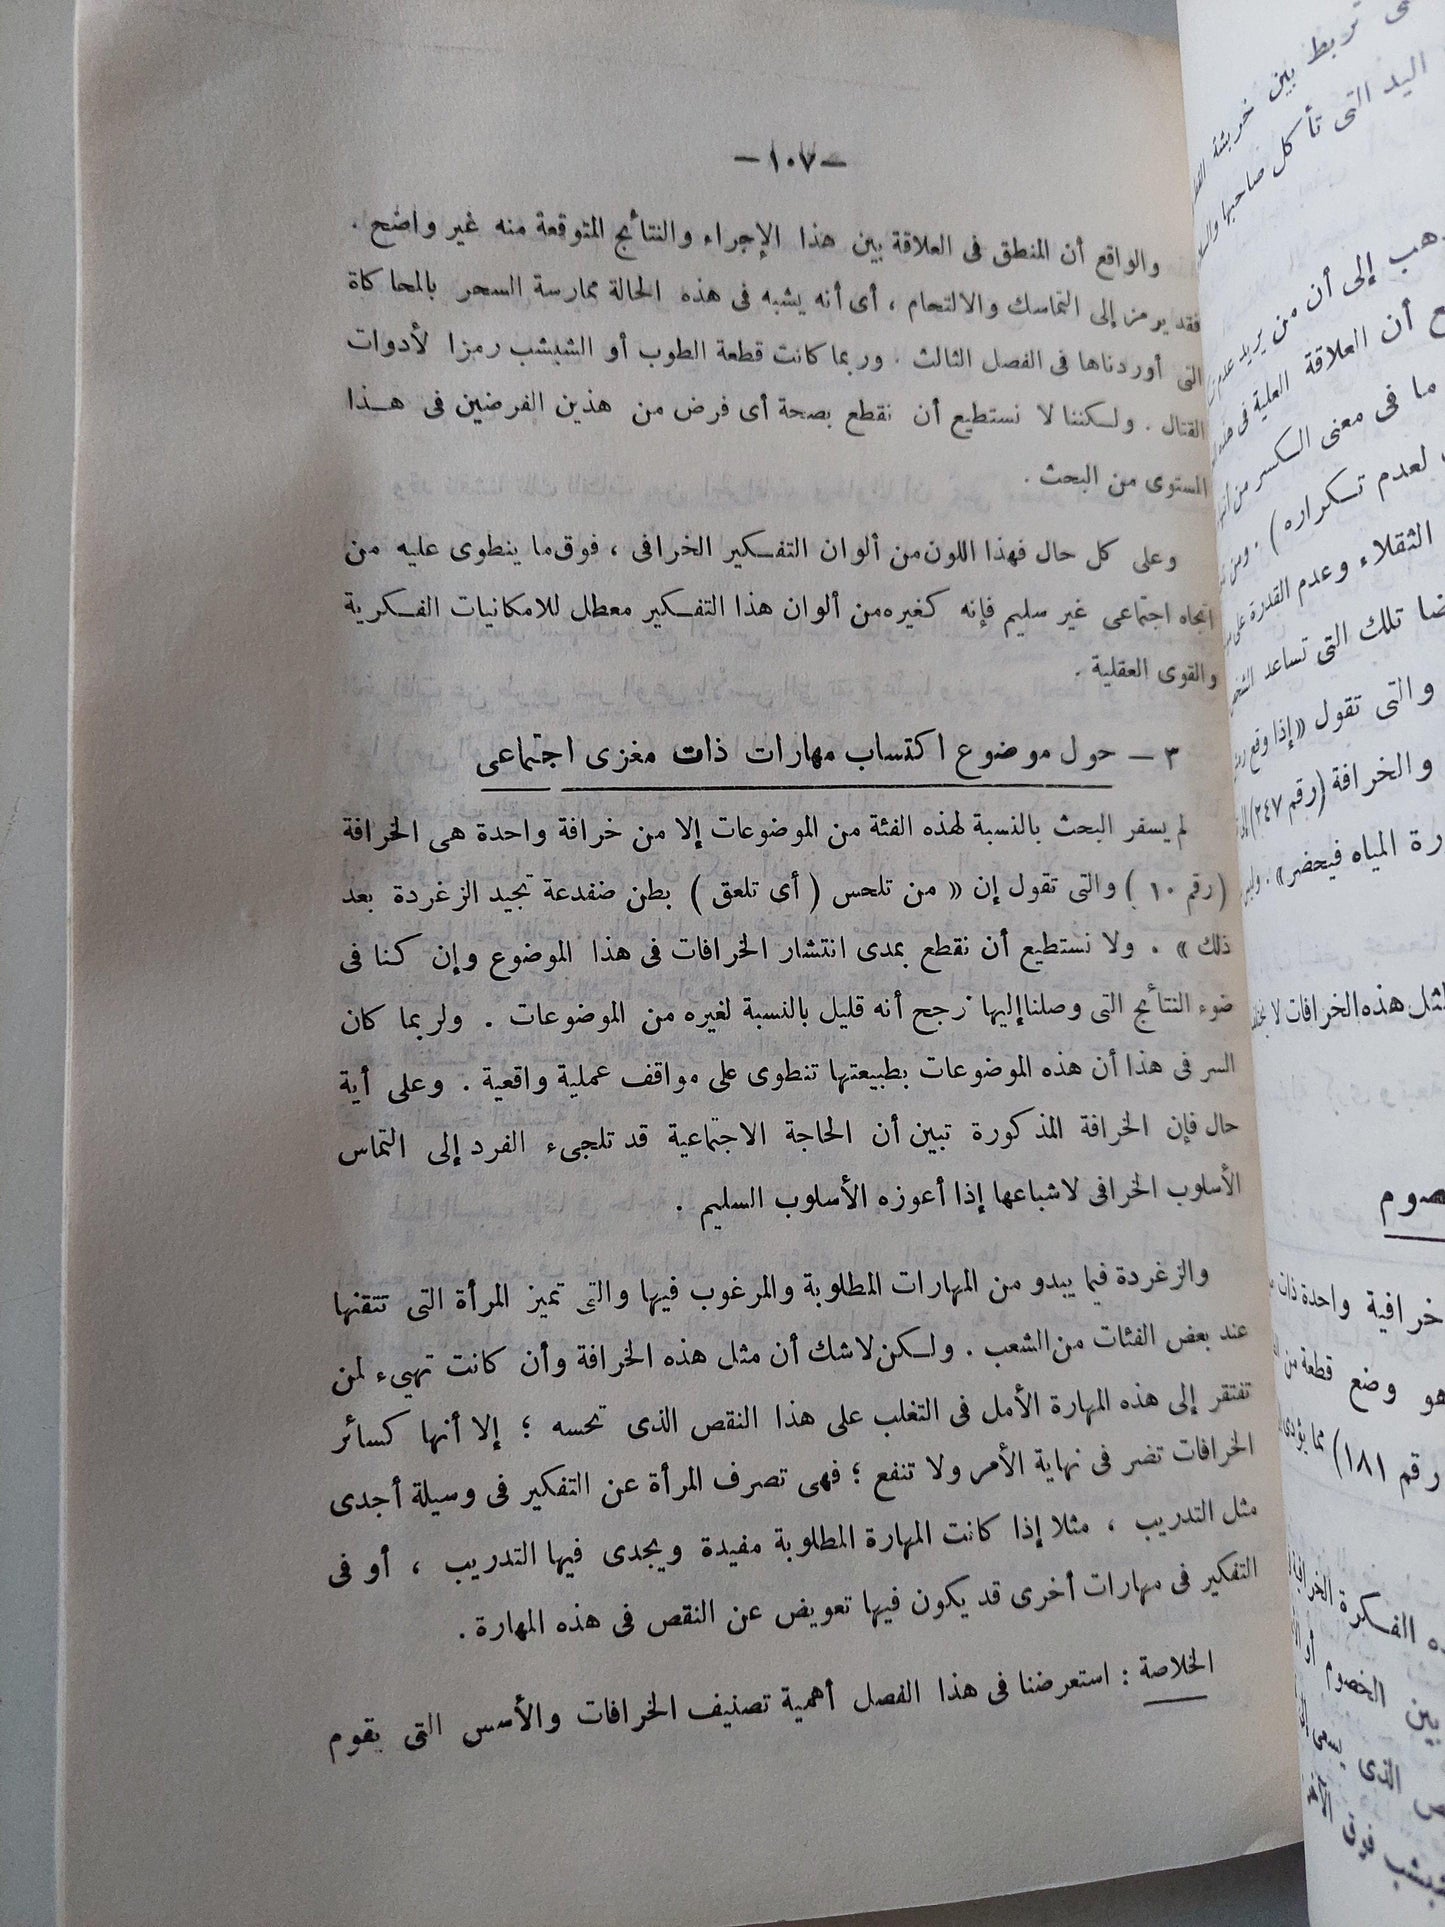 — ١٠٧ —
والواقع أن المنطق فى العلاقة بين هذا الإجراء والنتائج المتوقعة منه غير واضح .
فقد يرمز إلى التماسك والالتحام ، أى أنه يشبه فى هذه الحالة ممارسة السحر بالمحاكاة
التى أوردناها فى الفصل الثالث . وربما كانت قطعة الطوب أو الشبشب رمزا لأدوات
القتال . ولكننا لا نستطيع أن نقطع بصحة أى فرض من هذين الفرضين فى هذا
المستوى من البحث .
وعلى كل حال فهذا اللون من ألوان التفكير الخرافى ، فوق ما ينطوى عليه من
اتجاه اجتماعى غير سليم فإنه كغيره من ألوان هذا التفكير معطل للامكانيات الفكرية
والقوى العقلية .
٣ — حول موضوع اكتساب مهارات ذات مغزى اجتماعى
لم يسفر البحث بالنسبة لهذه الفئة من الموضوعات إلا من خرافة واحدة هى الخرافة
( رقم ١٠ ) والتى تقول إن « من تلحس ( أى تلعق ) بطن ضفدعة تجيد الزغردة بعد
ذلك » . ولا نستطيع أن نقطع بمدى انتشار الخرافات فى هذا الموضوع وإن كنا فى
ضوء النتائج التى وصلنا إليها نرجح أنه قليل بالنسبة لغيره من الموضوعات . ولربما كان
السر فى هذا أن هذه الموضوعات بطبيعتها تنطوى على مواقف عملية واقعية . وعلى أية
حال فإن الخرافة المذكورة تبين أن الحاجة الاجتماعية قد تلجىء الفرد إلى التماس
الأسلوب الخرافى لاشباعها إذا أعوزه الأسلوب السليم .
والزغردة فيما يبدو من المهارات المطلوبة والمرغوب فيها والتى تميز المرأة التى تتقنها
عند بعض الفئات من الشعب . ولكن لاشك أن مثل هذه الخرافة وأن كانت تهيىء لمن
تفتقر إلى هذه المهارة الأمل فى التغلب على هذا النقص الذى تحسه ؛ إلا أنها كسائر
الخرافات تضر فى نهاية الأمر ولا تنفع ؛ فهى تصرف المرأة عن التفكير فى وسيلة أجدى
مثل التدريب ، مثلا إذا كانت المهارة المطلوبة مفيدة ويجدى فيها التدريب ، أو فى
التفكير فى مهارات أخرى قد يكون فيها تعويض عن النقص فى هذه المهارة .
الخلاصة : استعرضنا فى هذا الفصل أهمية تصنيف الخرافات والأسس التى يقوم
تربط بين خربشة
اليد التى تأكل صاحبها
إلى أن من يريد
أن العلاقة العلية فى
ما فى معنى الكسر من
لعدم تكراره ) . ومن
الثقلاء وعدم القدرة
تلك التى تساعد
والتى تقول « إذا وقع
والخرافة ( رقم ٢٤٧ )
المياه فيحضر » .
هذه الخرافات لا
خرافية واحدة ذات
وضع قطعة من
رقم ١٨١ ) مما يؤدى
الفكرة الخرافية
بين الخصوم أو
الذى يسعى
فوق